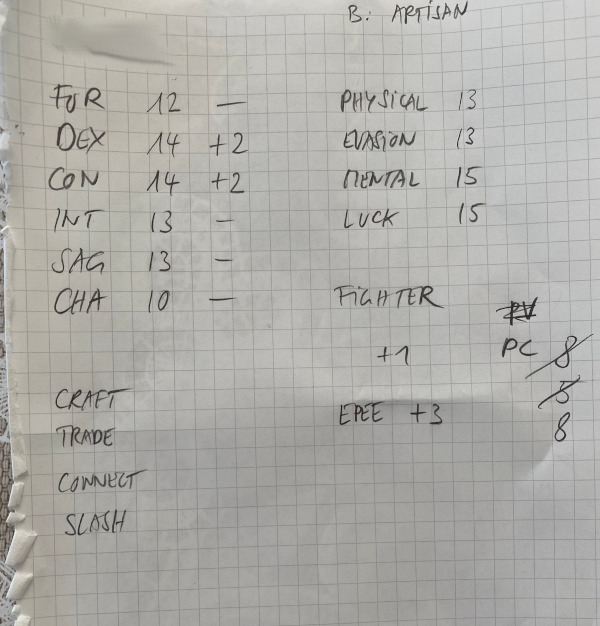 B: ARTISAN
FOR 12 —
DEX 14 +2
CON 14 +2
INT 13 –
SAG 13 –
CHA 10 —
PHYSICAL 13
EVASION 13
MENTAL 15
LUCK 15
FIGHTER
+1
PV
PC 8
8
8
EPEE +3
CRAFT
TRADE
CONNECT
SLASH